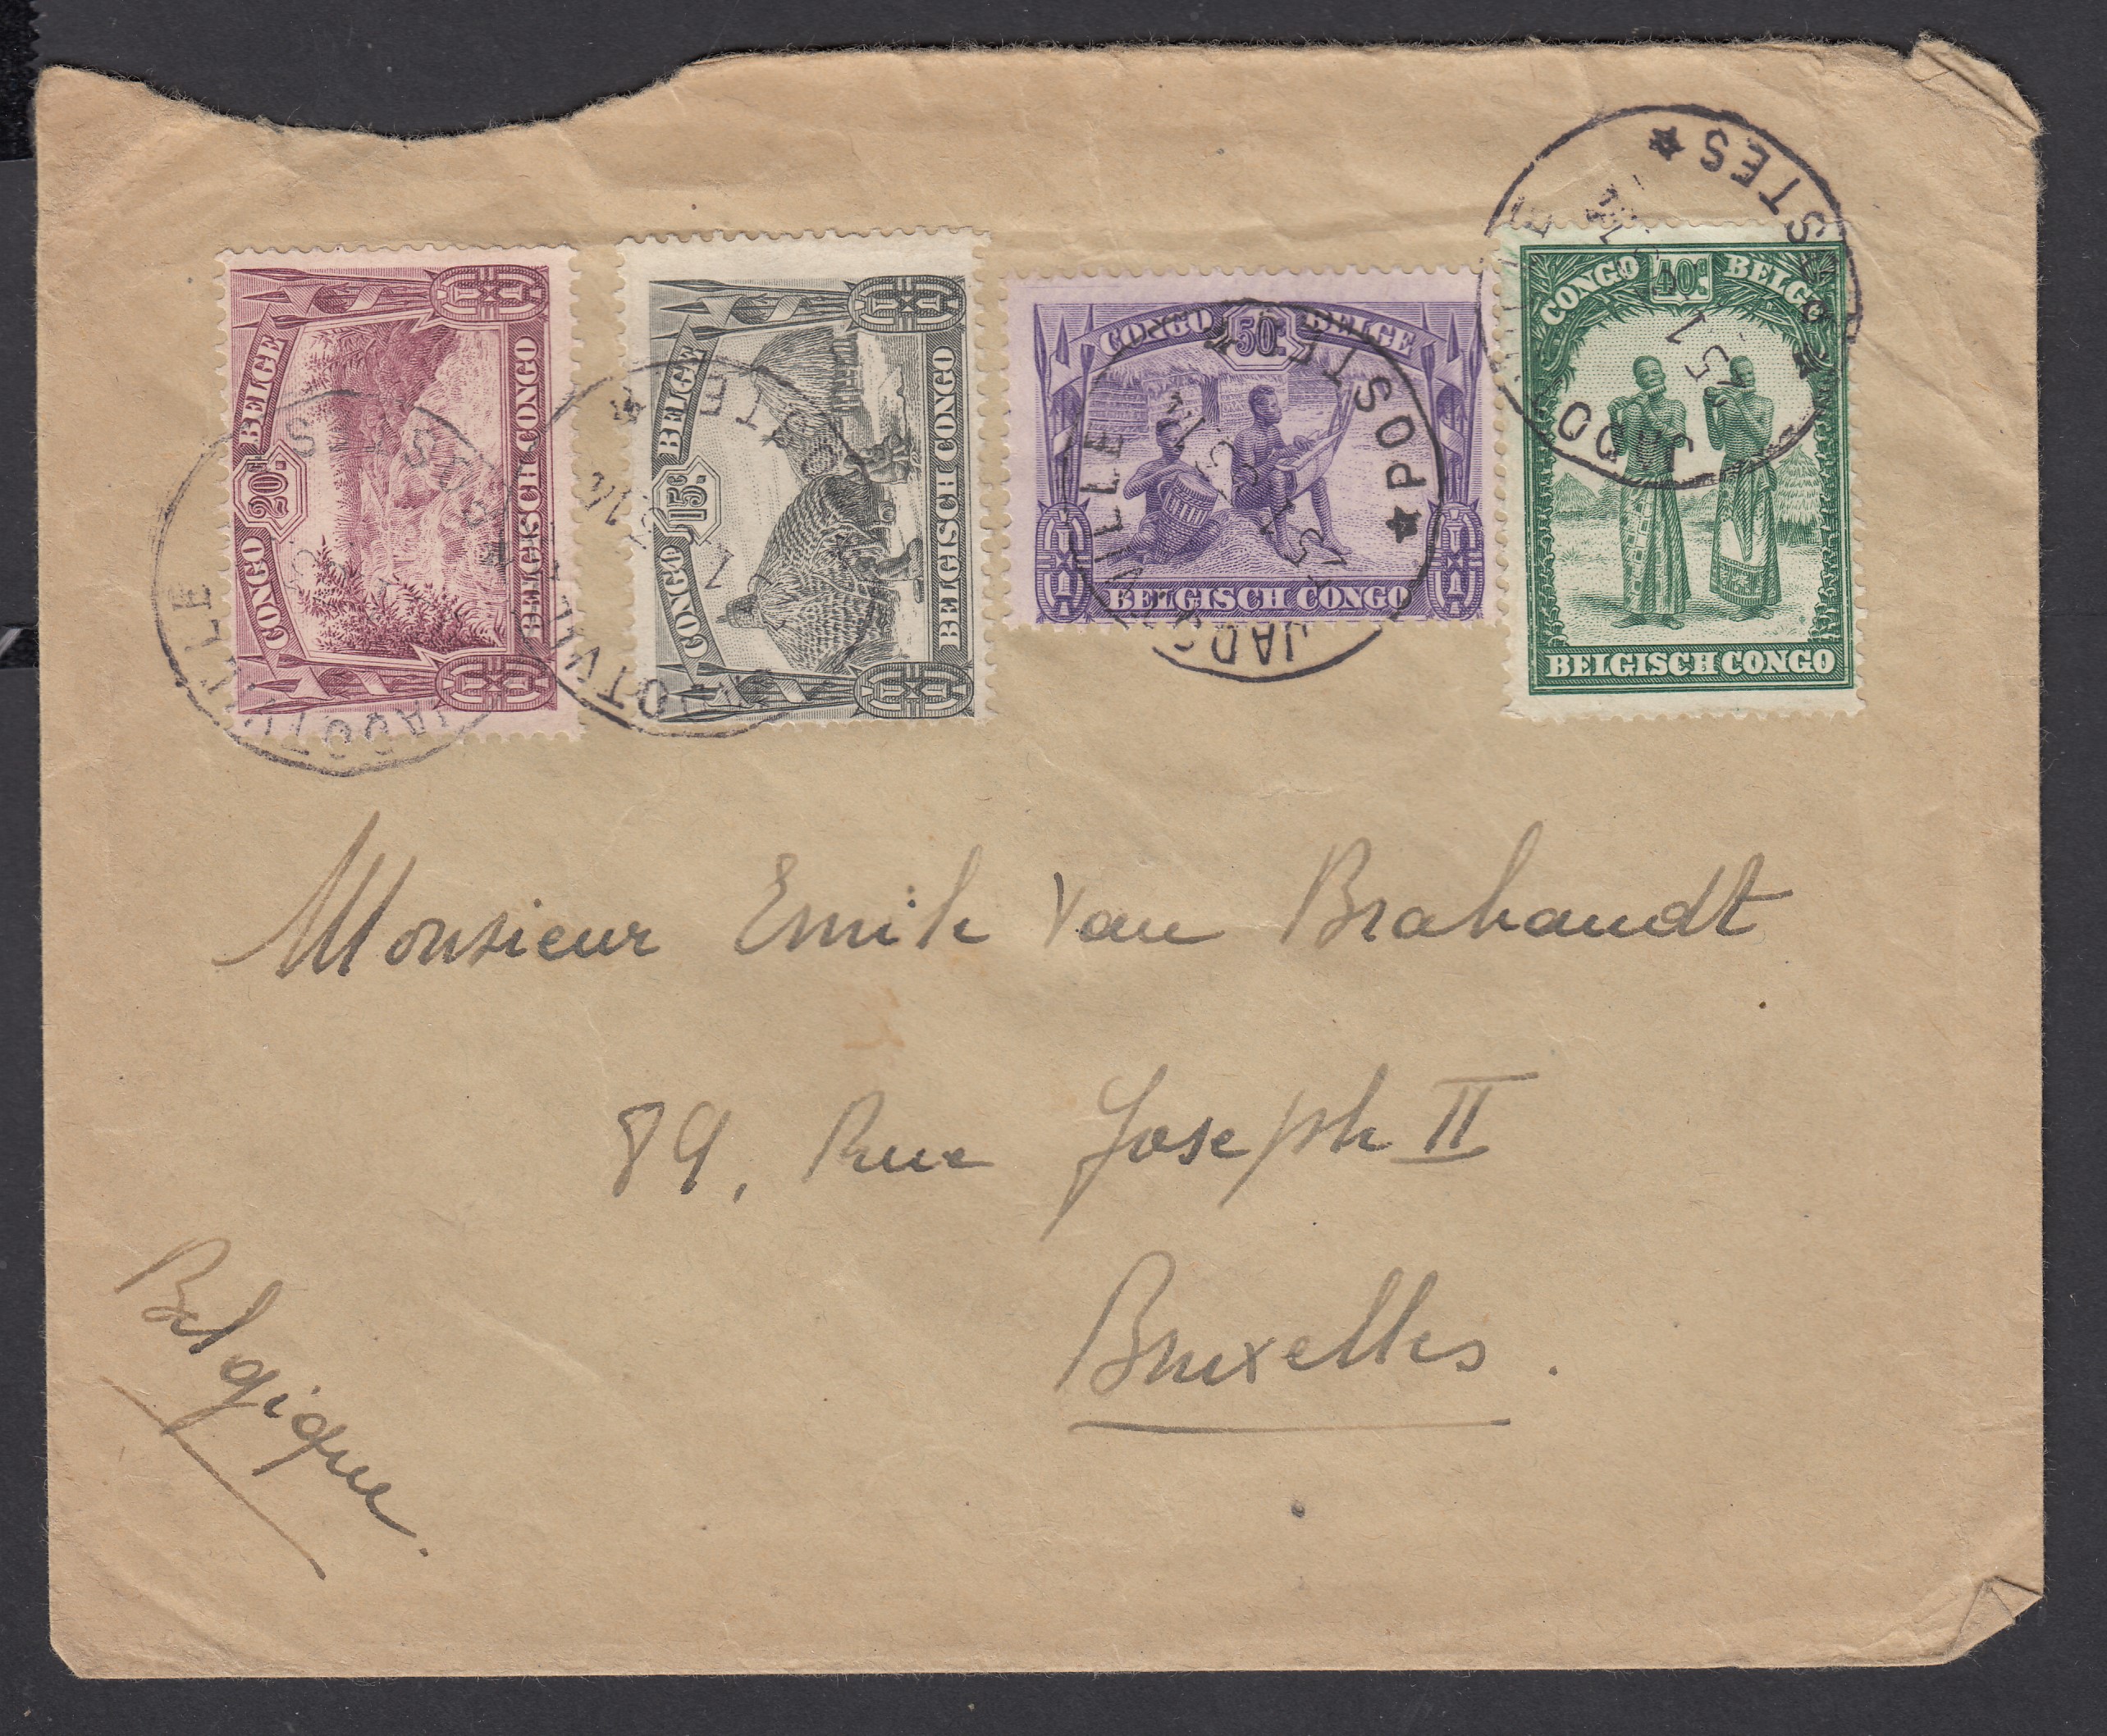 CONGO 20c. BELGE
BELGISCH CONGO
CONGO 15c. BELGE
BELGISCH CONGO
CONGO 50c. BELGE
BELGISCH CONGO
CONGO 40c BELGE
BELGISCH CONGO
JADOTVILLE
POSTES
JADOTVILLE
JADOTVILLE
POSTE
JADOTVILLE
POSTES
Monsieur Emile Van Brabandt
89, Rue Joseph II
Bruxelles.
Belgique.